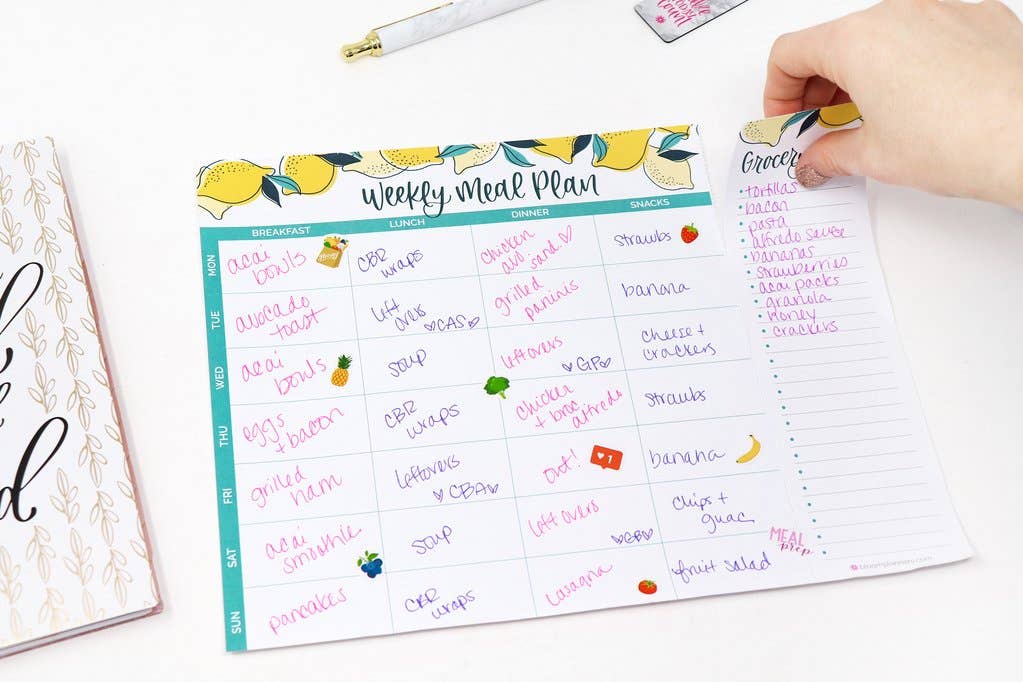 Weekly Meal Plan
BREAKFAST LUNCH DINNER SNACKS
MON
acai
bowls
CBR
wraps
chicken
avo.
sand
strawbs
TUE
avocado
toast
left
overs
CAS
grilled
paninis
banana
WED
acai
bowls
soup
leftovers
GP
cheese +
crackers
THU
eggs
+ bacon
CBR
wraps
chicken
+ broc
alfredo
strawbs
FRI
grilled
ham
leftovers
CBA
out!
1
banana
SAT
acai
smoothie
soup
leftovers
GB
chips +
guac
SUN
pancakes
CBR
wraps
lasagna
fruit salad
Grocery
tortillas
bacon
pasta
alfredo sauce
bananas
strawberries
acai packs
granola
honey
crackers
MEAL
prep
bloomplanners.com